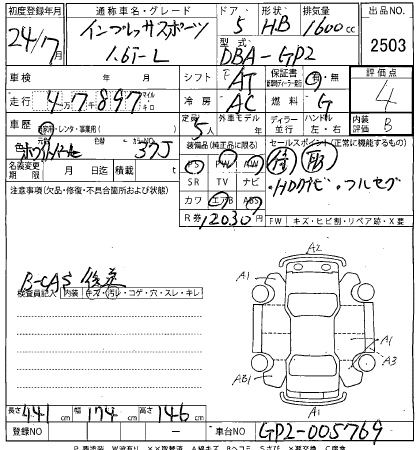 初度登録年月 通称車名・グレード ドア 形状 排気量 出品NO
24/7月 インプレッサスポーツ 5 HB 1600cc 2503
1.6i-L 型式 DBA-GP2
車検 年 月 シフト AT 保証書 有・無 評価点
走行 47,897 マイル キロ 冷房 AC 燃料 G 4
車歴 自家用・レンタ・事業用 定員 5人 外車モデル 年 ディーラー 並行 ハンドル 左・右 内装評価 B
色 元色 ホワイトパール 色替 カラーNO 37J 装備品(純正品に限る) セールスポイント(正常に機能するもの)
PS PW 取
名義変更期限 月 日迄 積載 t SR TV ナビ ・HDDナビ・フルセグ
注意事項(欠品・修復・不具合箇所および状態) カワ エアB ABS
R券 12030円 FW キズ・ヒビ割・リペア跡・X要
B-CAS 後送
検査員記入 内装 キズ・汚レ・コゲ・穴・スレ・キレ
A2
A1
A1
A1
A3
AB1
A1
長さ 441cm 幅 174cm 高さ 146cm
登録NO 車台NO GP2-005769